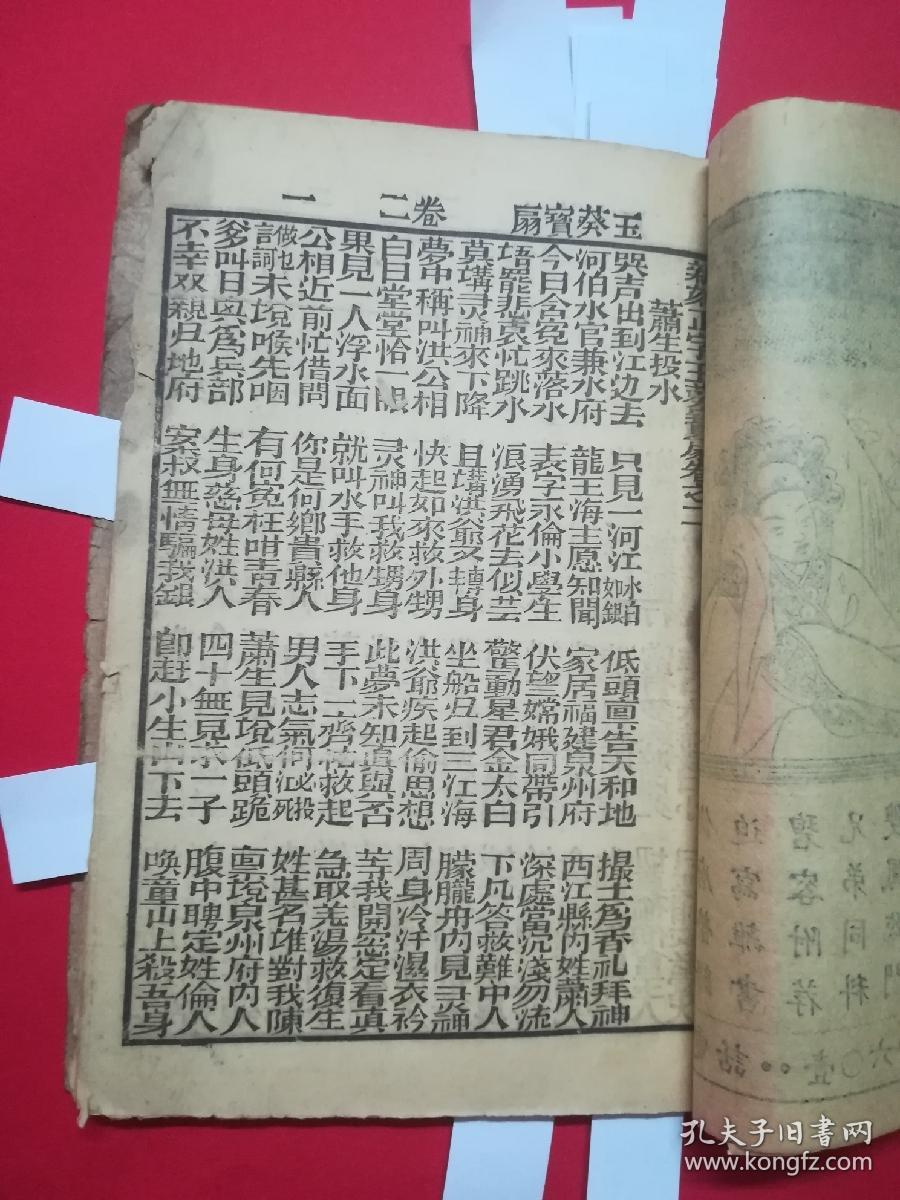 玉葵寶扇 卷二 一
蕭生投水
哭声出到江边去 只見一河江水白如銀 低頭禀告天和地 撮土為香礼拜神
河伯水官兼水府 龍王海主愿知聞 家居福建泉州府 西江縣内姓蕭人
今日含冤來落水 表字永倫小學生 伏望嫦娥同帶引 深處當沉淺勿流
唔罷悲哀忙跳水 浪湧飛花去似芸 驚動星君金太白 下凡答救難中人
莫講灵神來下降 且講洪爺又轉身 坐船归到三江海 朦朧舟内見灵神
夢中稱叫洪公相 快起如來救外甥 洪爺疾起偷思想 周身冷汗濕衣衿
白日堂堂恰一眼 灵神叫我救甥身 此夢未知真與否 等我開窓定看真
果見一人浮水面 就叫水手救他身 手下一齊救起 急取羌湯救復生
公相近前忙借問 你是何鄉貴縣人 男人志氣何必投死 姓甚名誰對我陳
做乜言詞未説喉先咽 有何冤枉咁青春 蕭生見説低頭跪 禀説泉州府内人
爹叫日興為兵部 生身慈母姓洪人 四十無兒求一子 腹中聘定姓倫人
不幸双親归地府 叔無情騙我銀 即赶小生山下去 喚童山上殺吾身
兄弟同科
碧容附荐
迫寫離書
孔夫子旧书网
www.kongfz.com